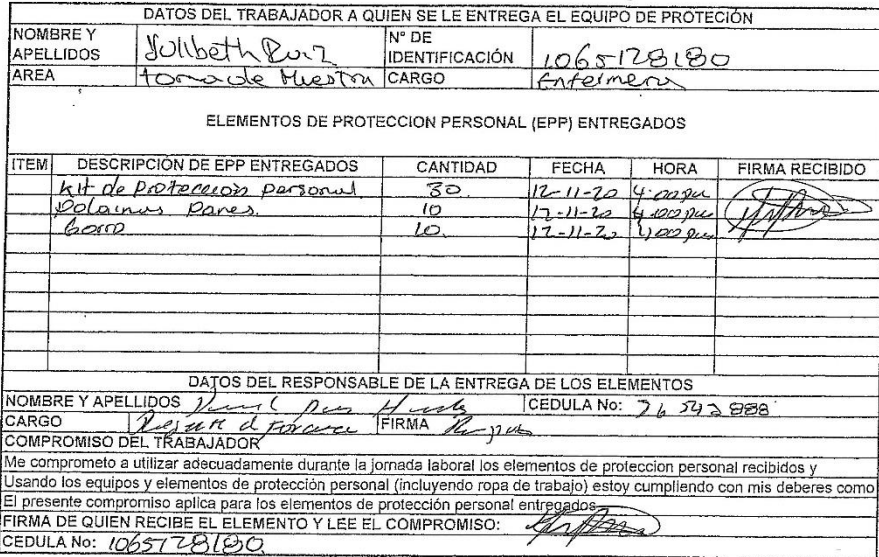 DATOS DEL TRABAJADOR A QUIEN SE LE ENTREGA EL EQUIPO DE PROTECIÓN
NOMBRE Y APELLIDOS Yulibeth Ruiz N° DE IDENTIFICACIÓN 1065128180
AREA toma de Muestra CARGO Enfermera
ELEMENTOS DE PROTECCION PERSONAL (EPP) ENTREGADOS
ITEM DESCRIPCIÓN DE EPP ENTREGADOS CANTIDAD FECHA HORA FIRMA RECIBIDO
Kit de Proteccion personal 30 12-11-20 4:00 pm
Polainas Pares. 10 12-11-20 4:00 pm
Gorro 10. 12-11-20 4:00 pm
DATOS DEL RESPONSABLE DE LA ENTREGA DE LOS ELEMENTOS
NOMBRE Y APELLIDOS CEDULA No: 26542888
CARGO FIRMA
COMPROMISO DEL TRABAJADOR
Me comprometo a utilizar adecuadamente durante la jornada laboral los elementos de proteccion personal recibidos y
Usando los equipos y elementos de protección personal (incluyendo ropa de trabajo) estoy cumpliendo con mis deberes como
El presente compromiso aplica para los elementos de protección personal entregados
FIRMA DE QUIEN RECIBE EL ELEMENTO Y LEE EL COMPROMISO:
CEDULA No: 1065128180